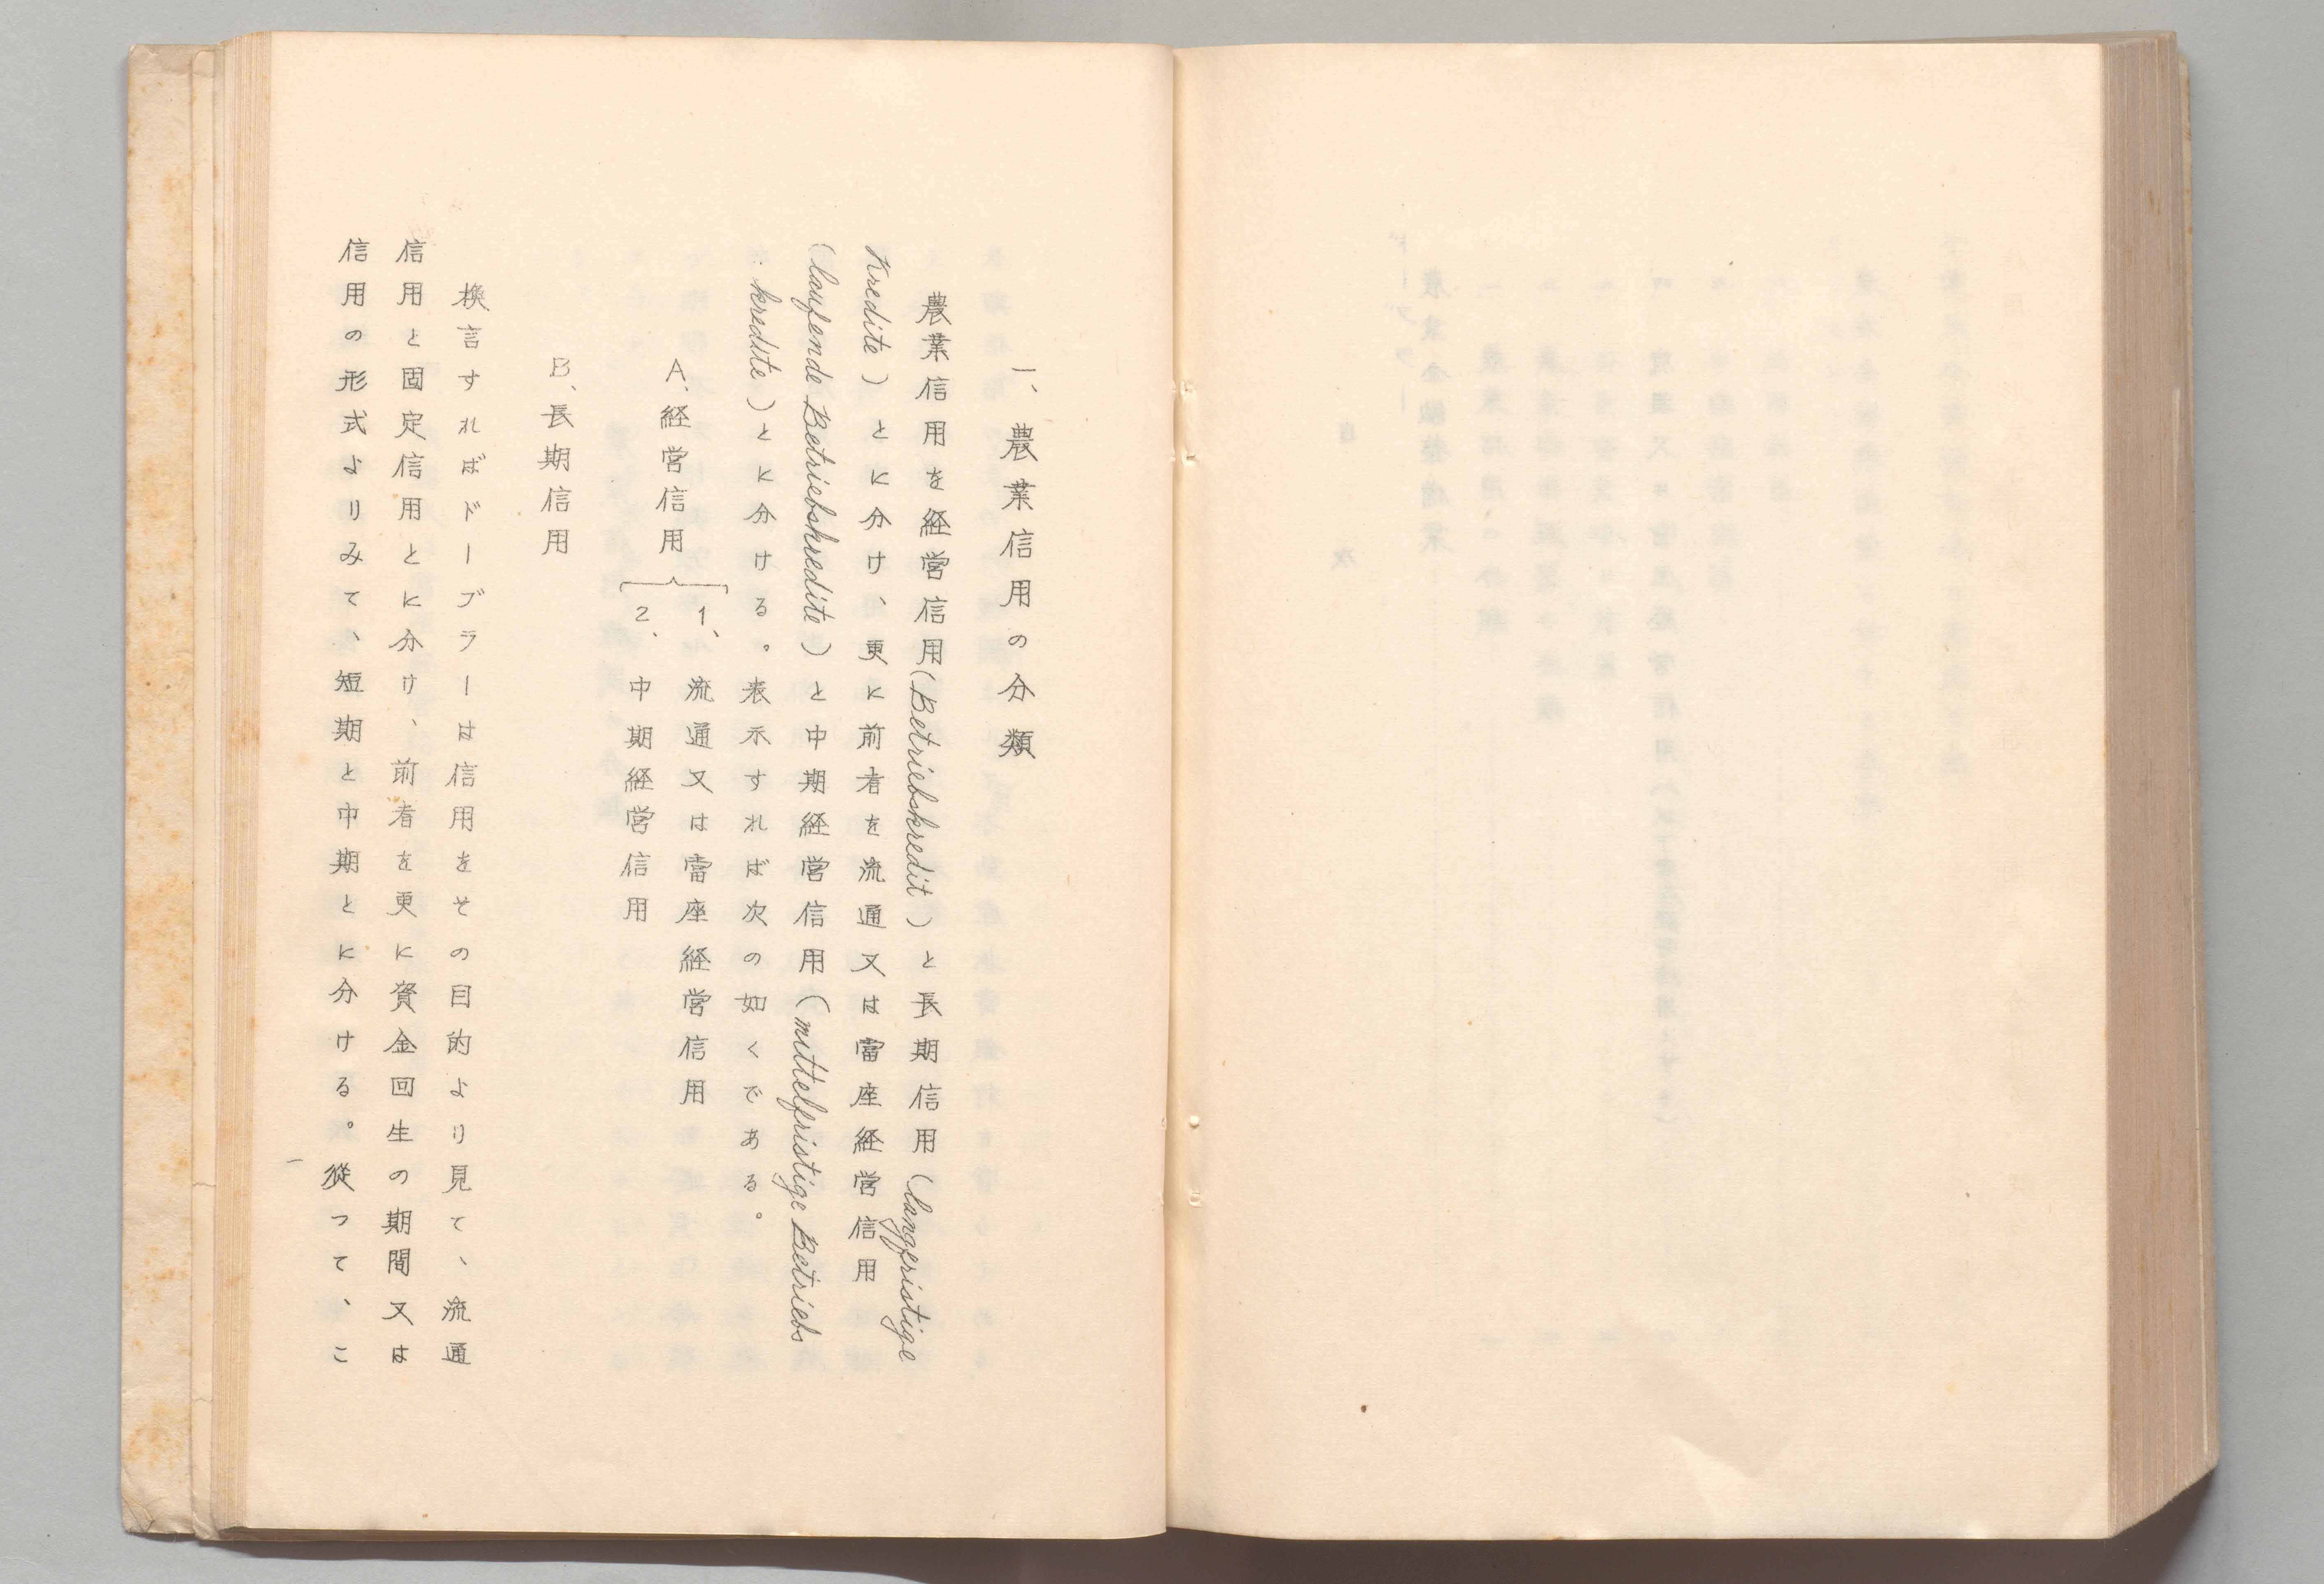 一、農業信用の分類
農業信用を経営信用(Betriebskredit)と長期信用(langfristige
Kredite)とに分け、更に前者を流通又は當座経営信用
(laufende Betriebskredite)と中期経営信用(mittelfristige Betriebs
kredite)とに分ける。表示すれば次の如くである。
A、経営信用
1、流通又は當座経営信用
2、中期経営信用
B、長期信用
換言すればドーブラーは信用をその目的より見て、流通
信用と固定信用とに分け、前者を更に資金回生の期間又は
信用の形式よりみて、短期と中期とに分ける。從って、こ
一